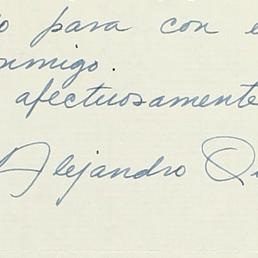 o para con e
nmigo.
afectuosamente
Alejandro